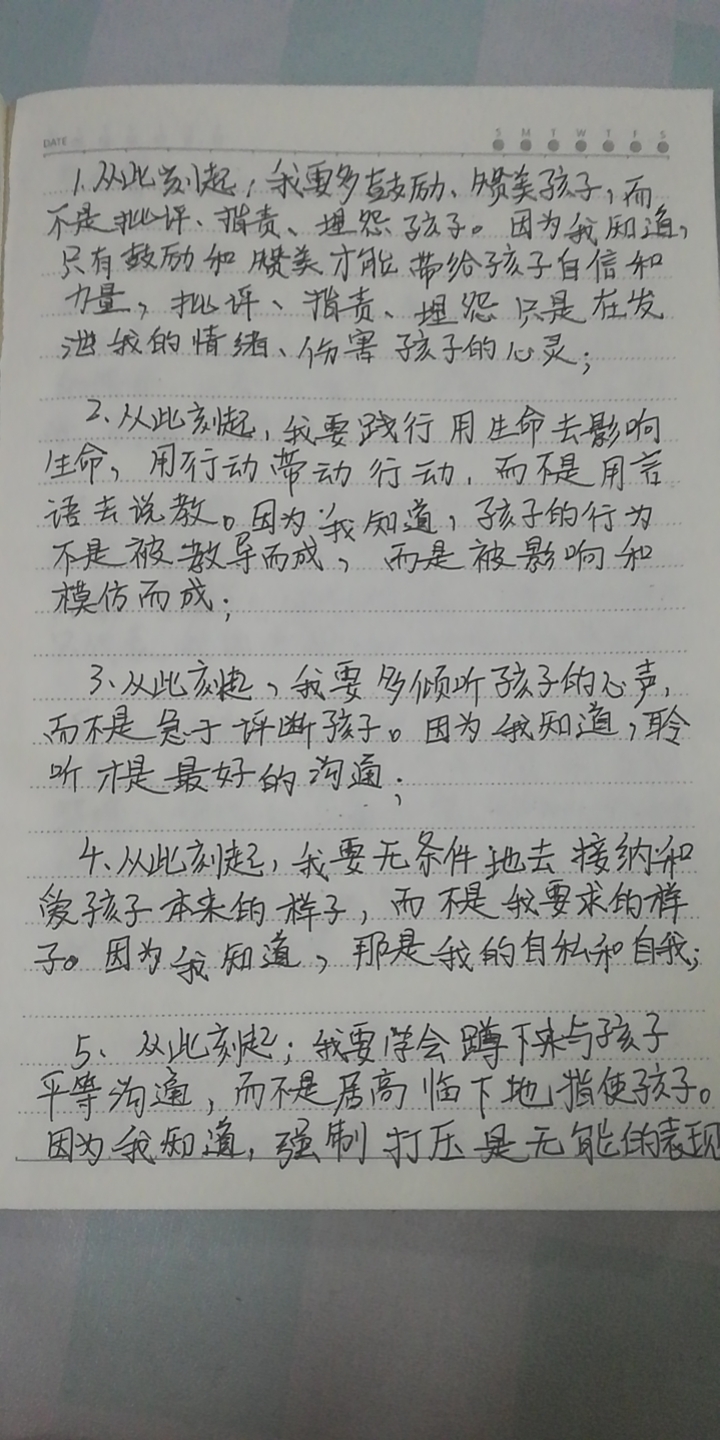 DATE
S M T W T F S
1、从此刻起，我要多鼓励、赞美孩子，而
不是批评、指责、埋怨孩子。因为我知道，
只有鼓励和赞美才能带给孩子自信和
力量，批评、指责、埋怨只是在发
泄我的情绪、伤害孩子的心灵；
2、从此刻起，我要践行用生命去影响
生命，用行动带动行动，而不是用言
语去说教。因为我知道，孩子的行为
不是被教导而成，而是被影响和
模仿而成；
3、从此刻起，我要多倾听孩子的心声，
而不是急于评断孩子。因为我知道，聆
听才是最好的沟通；
4、从此刻起，我要无条件地去接纳和
爱孩子本来的样子，而不是我要求的样
子。因为我知道，那是我的自私和自我；
5、从此刻起；我要学会蹲下来与孩子
平等沟通，而不是居高临下地指使孩子。
因为我知道，强制打压是无能的表现